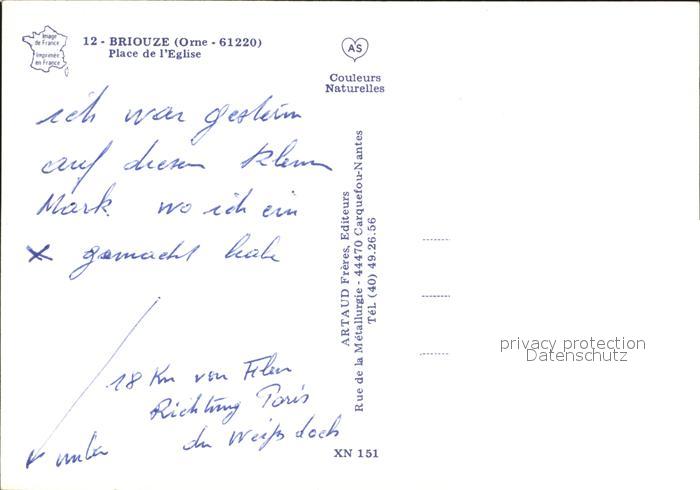 Image
de France
Imprimée
en France
12 - BRIOUZE (Orne - 61220)
Place de l'Eglise
AS
Couleurs
Naturelles
ich war gestern
auf diesem kleinen
Mark. wo ich ein
x gemacht habe
18 Km von Flers
Richtung Paris
x unter du Weißt doch
ARTAUD Frères, Editeurs
Rue de la Métallurgie - 44470 Carquefou-Nantes
Tél. (40) 49.26.56
XN 151
privacy protection
Datenschutz